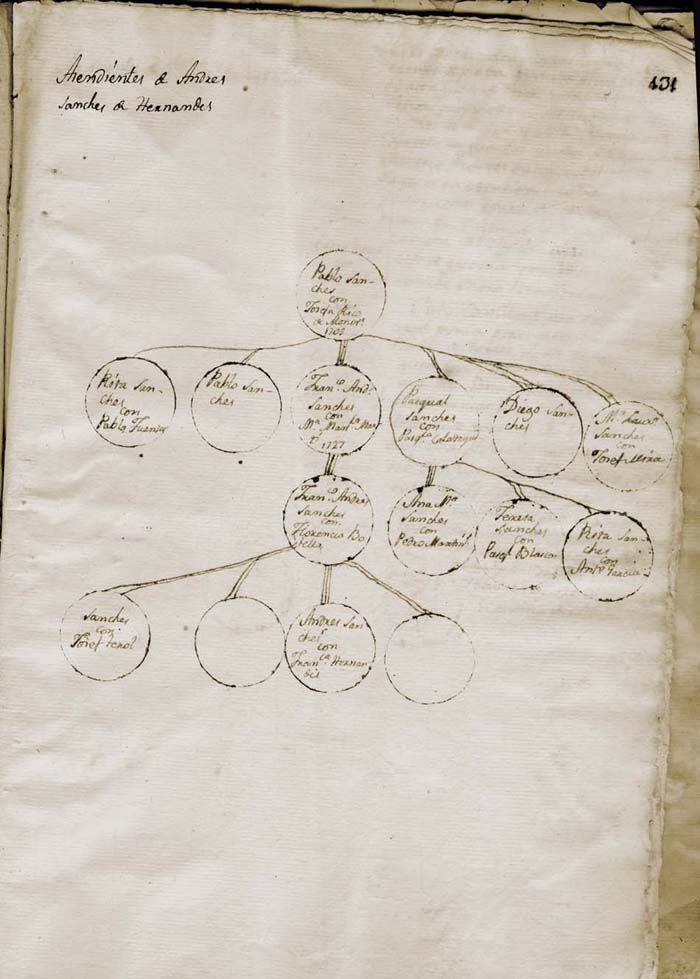 Atendientes de Andres
Sanches de Hernandes
131
Pablo San-
ches
con
Josefa Rico
de Menor.ˢ
1702
Rita San-
ches
con
Pablo Fuentes
Pablo San-
ches
Fran.ᶜᵒ And.ˢ
Sanches
con
M.ᵃ
1727
Pasqual
Sanches
con
Diego San-
ches
M.ᵃ
Sanches
con
Josef Mira
Fran.ᶜᵒ Andres
Sanches
con
Florencia Bo
tella
Ana M.ᵃ
Sanches
con
Pedro Martin.ˢ
Teresa
Sanches
con
Pasq.ˡ Blasco
Rita San-
ches
con
Ant.º Garcia
Sanches
con
Josef Ferol
Andres San-
ches
con
Fran.ᶜᵃ Hernan-
dis